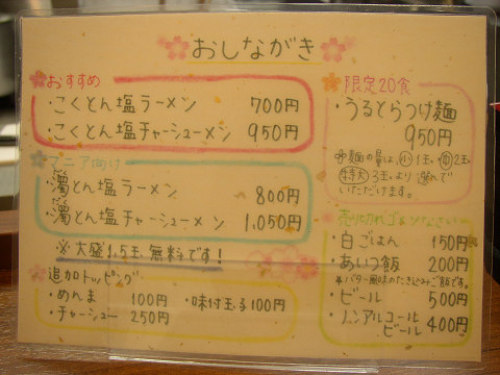 おしながき
おすすめ
・こくとん塩ラーメン 700円
・こくとん塩チャーシューメン 950円
マニア向け
・濁とん塩ラーメン 800円
・濁とん塩チャーシューメン 1,050円
※大盛1.5玉、無料です!
追加トッピング
・めんま 100円 ・味付玉子100円
・チャーシュー 250円
限定20食
・うるとらつけ麺
950円
麺の量は、小1玉、中2玉
特大3玉より選んで
いただけます。
売り切れゴメンなさい
・白ごはん 150円
・あいつ飯 200円
※バター風味のたき込みご飯です。
・ビール 500円
・ノンアルコール
ビール 400円